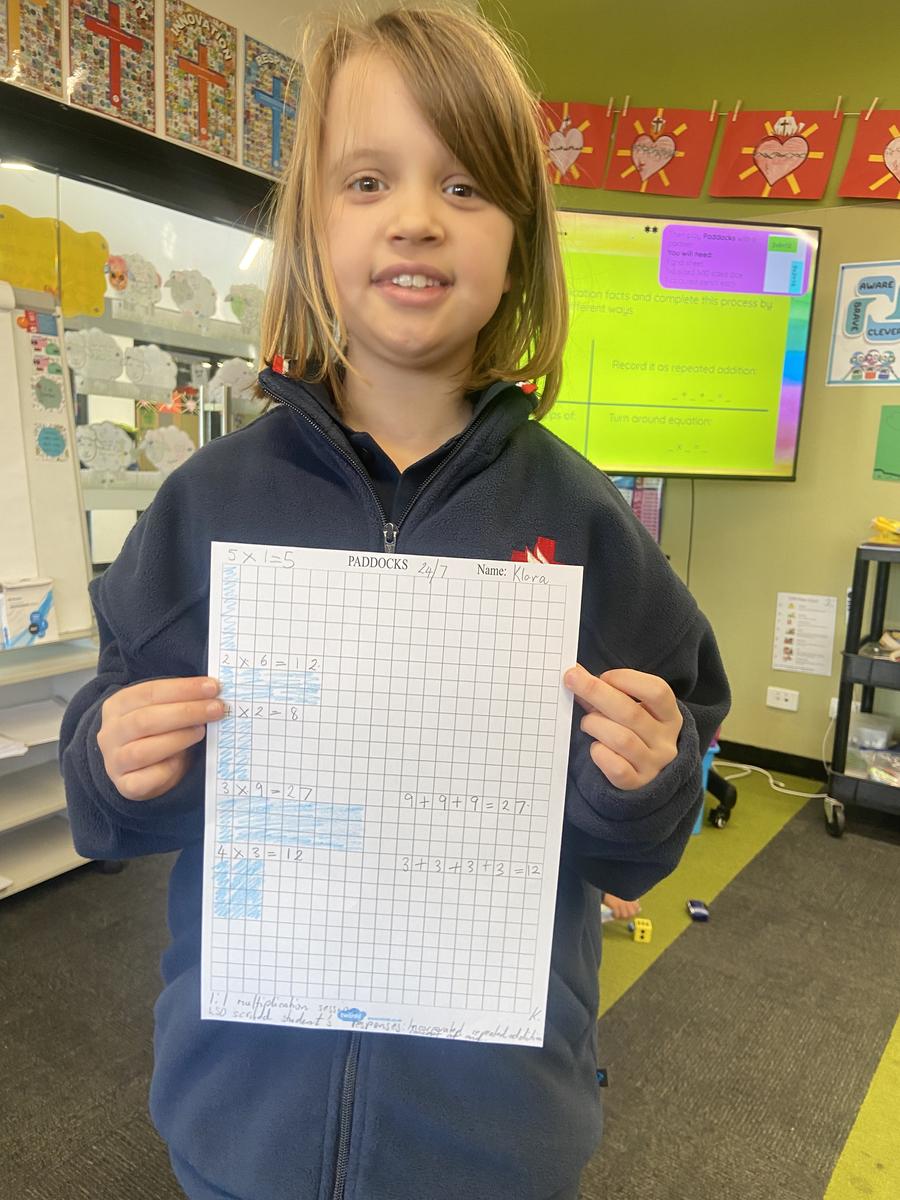 INNOVATION
**
Then play Paddocks with a
partner.
You will need:
cation facts and complete this process by
fferent ways
Record it as repeated addition:
_ + _ + _ = _
ps of:
Turn around equation:
_ x _ = _
AWARE
BRAVE
CLEVER
5 x 1=5
PADDOCKS 24/7 Name: Klara
2 x 6 = 12
4 x 2 = 8
3 x 9 = 27
9+9+9=27
4 x 3 = 12
3+3+3+3=12
1:1 multiplication
LSO scribed student's responses. Incorporated repeated addition
twinkl
K